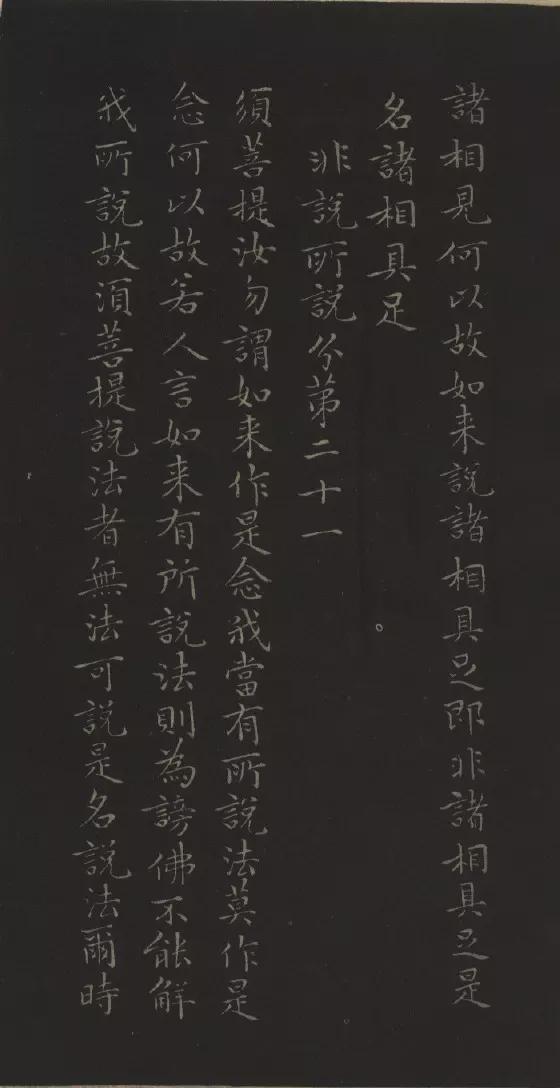 諸相見何以故如来說諸相具足即非諸相具足是
名諸相具足
非說所說分第二十一
須菩提汝勿謂如来作是念我當有所說法莫作是
念何以故若人言如来有所說法則為謗佛不能解
我所說故須菩提說法者無法可說是名說法爾時